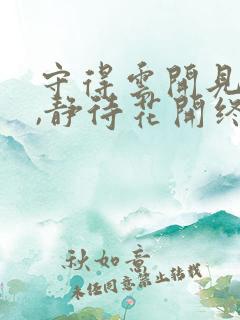 守得雲開見
,靜待花開終
秋如意
未经同意禁止转载